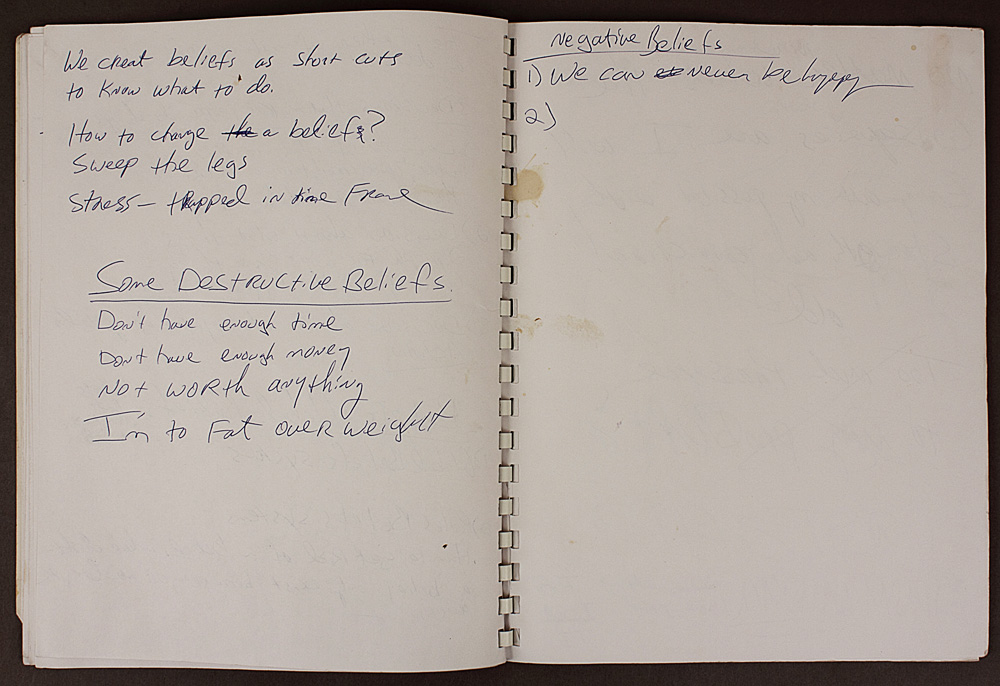 We creat beliefs as short cuts
to know what to do.
How to change the a beliefs?
Sweep the legs
Stress - trapped in time Frame
Some Destructive Beliefs.
Don't have enough time
Don't have enough money
Not worth anything
I'm to Fat over weight
Negative Beliefs
1) We can never be happy
2)